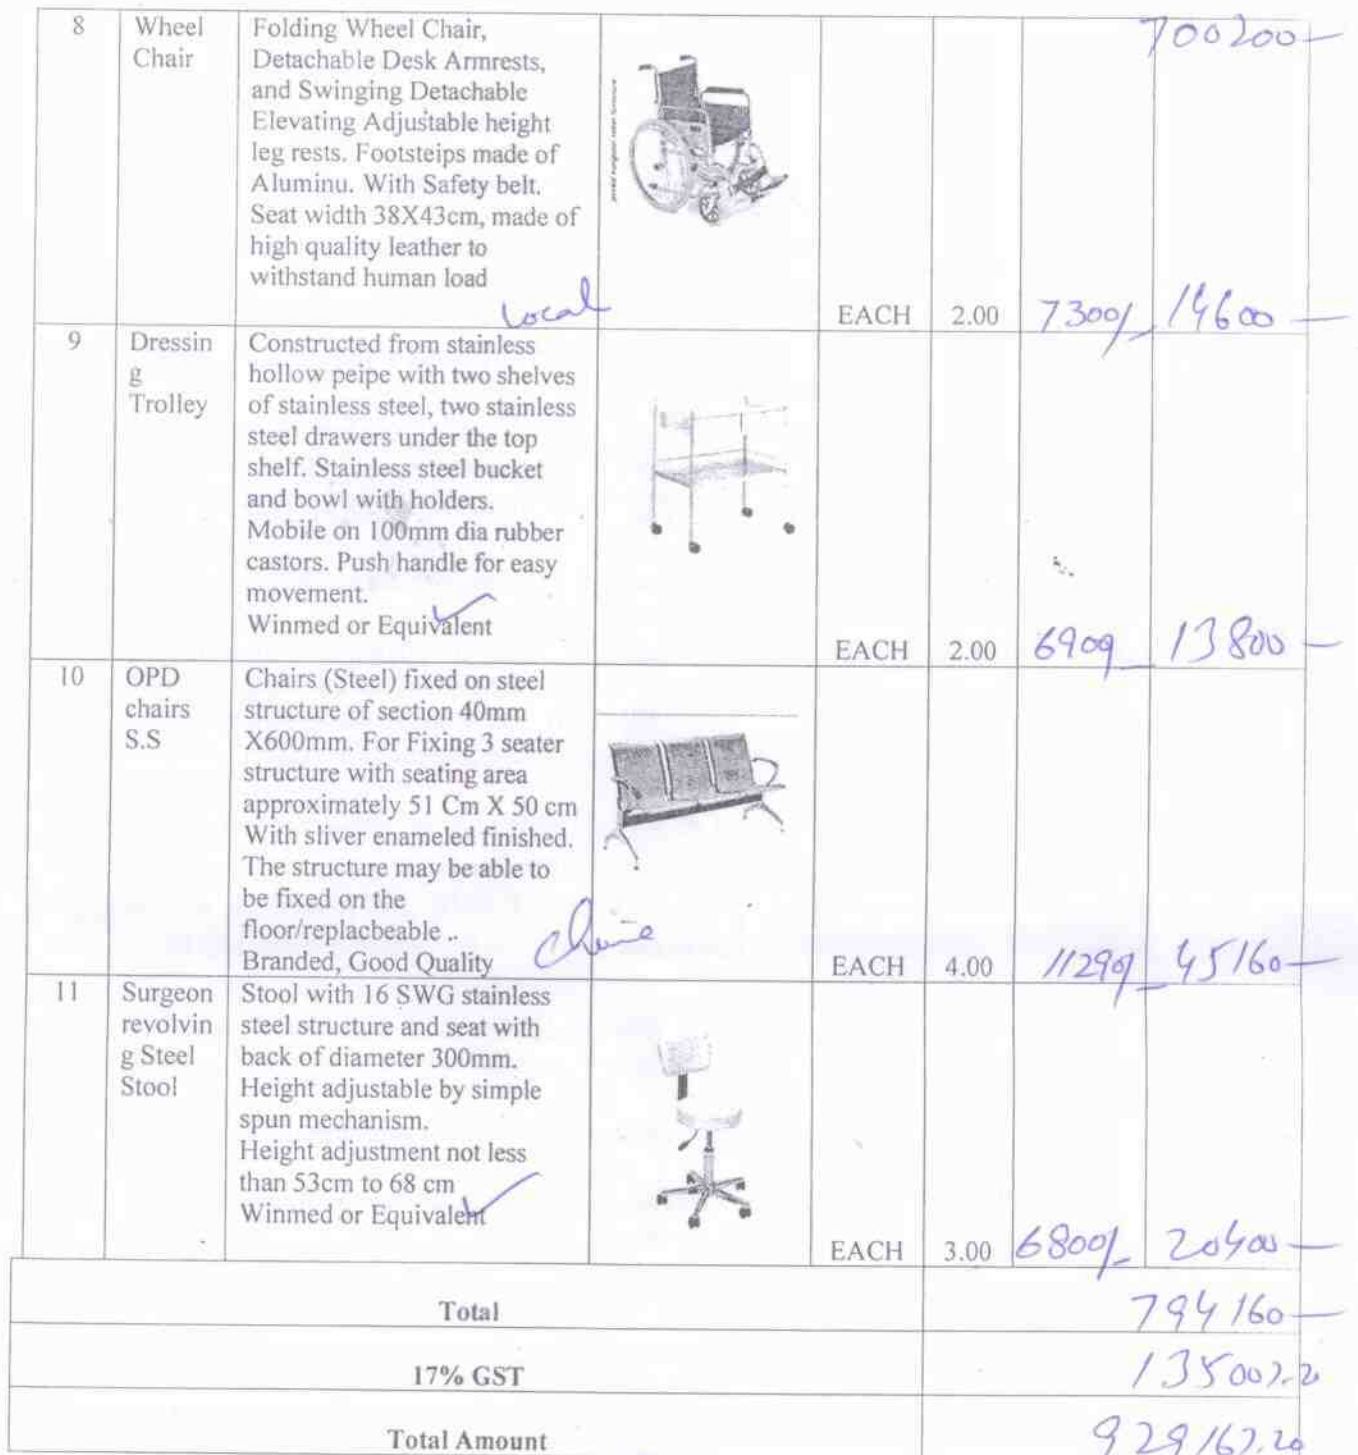 700200-
8 Wheel Folding Wheel Chair,
Chair Detachable Desk Armrests,
and Swinging Detachable
Elevating Adjustable height
leg rests. Footsteips made of
Aluminu. With Safety belt.
Seat width 38X43cm, made of
high quality leather to
withstand human load
Local
EACH 2.00 7300/- 14600-
9 Dressin Constructed from stainless
g hollow peipe with two shelves
Trolley of stainless steel, two stainless
steel drawers under the top
shelf. Stainless steel bucket
and bowl with holders.
Mobile on 100mm dia rubber
castors. Push handle for easy
movement.
Winmed or Equivalent
EACH 2.00 6900/- 13800-
10 OPD Chairs (Steel) fixed on steel
chairs structure of section 40mm
S.S X600mm. For Fixing 3 seater
structure with seating area
approximately 51 Cm X 50 cm
With sliver enameled finished.
The structure may be able to
be fixed on the
floor/replacbeable ..
Branded, Good Quality
EACH 4.00 11290/- 45160-
11 Surgeon Stool with 16 SWG stainless
revolvin steel structure and seat with
g Steel back of diameter 300mm.
Stool Height adjustable by simple
spun mechanism.
Height adjustment not less
than 53cm to 68 cm
Winmed or Equivalent
EACH 3.00 6800/- 20400-
Total 794160-
17% GST 135007.20
Total Amount 929167.20